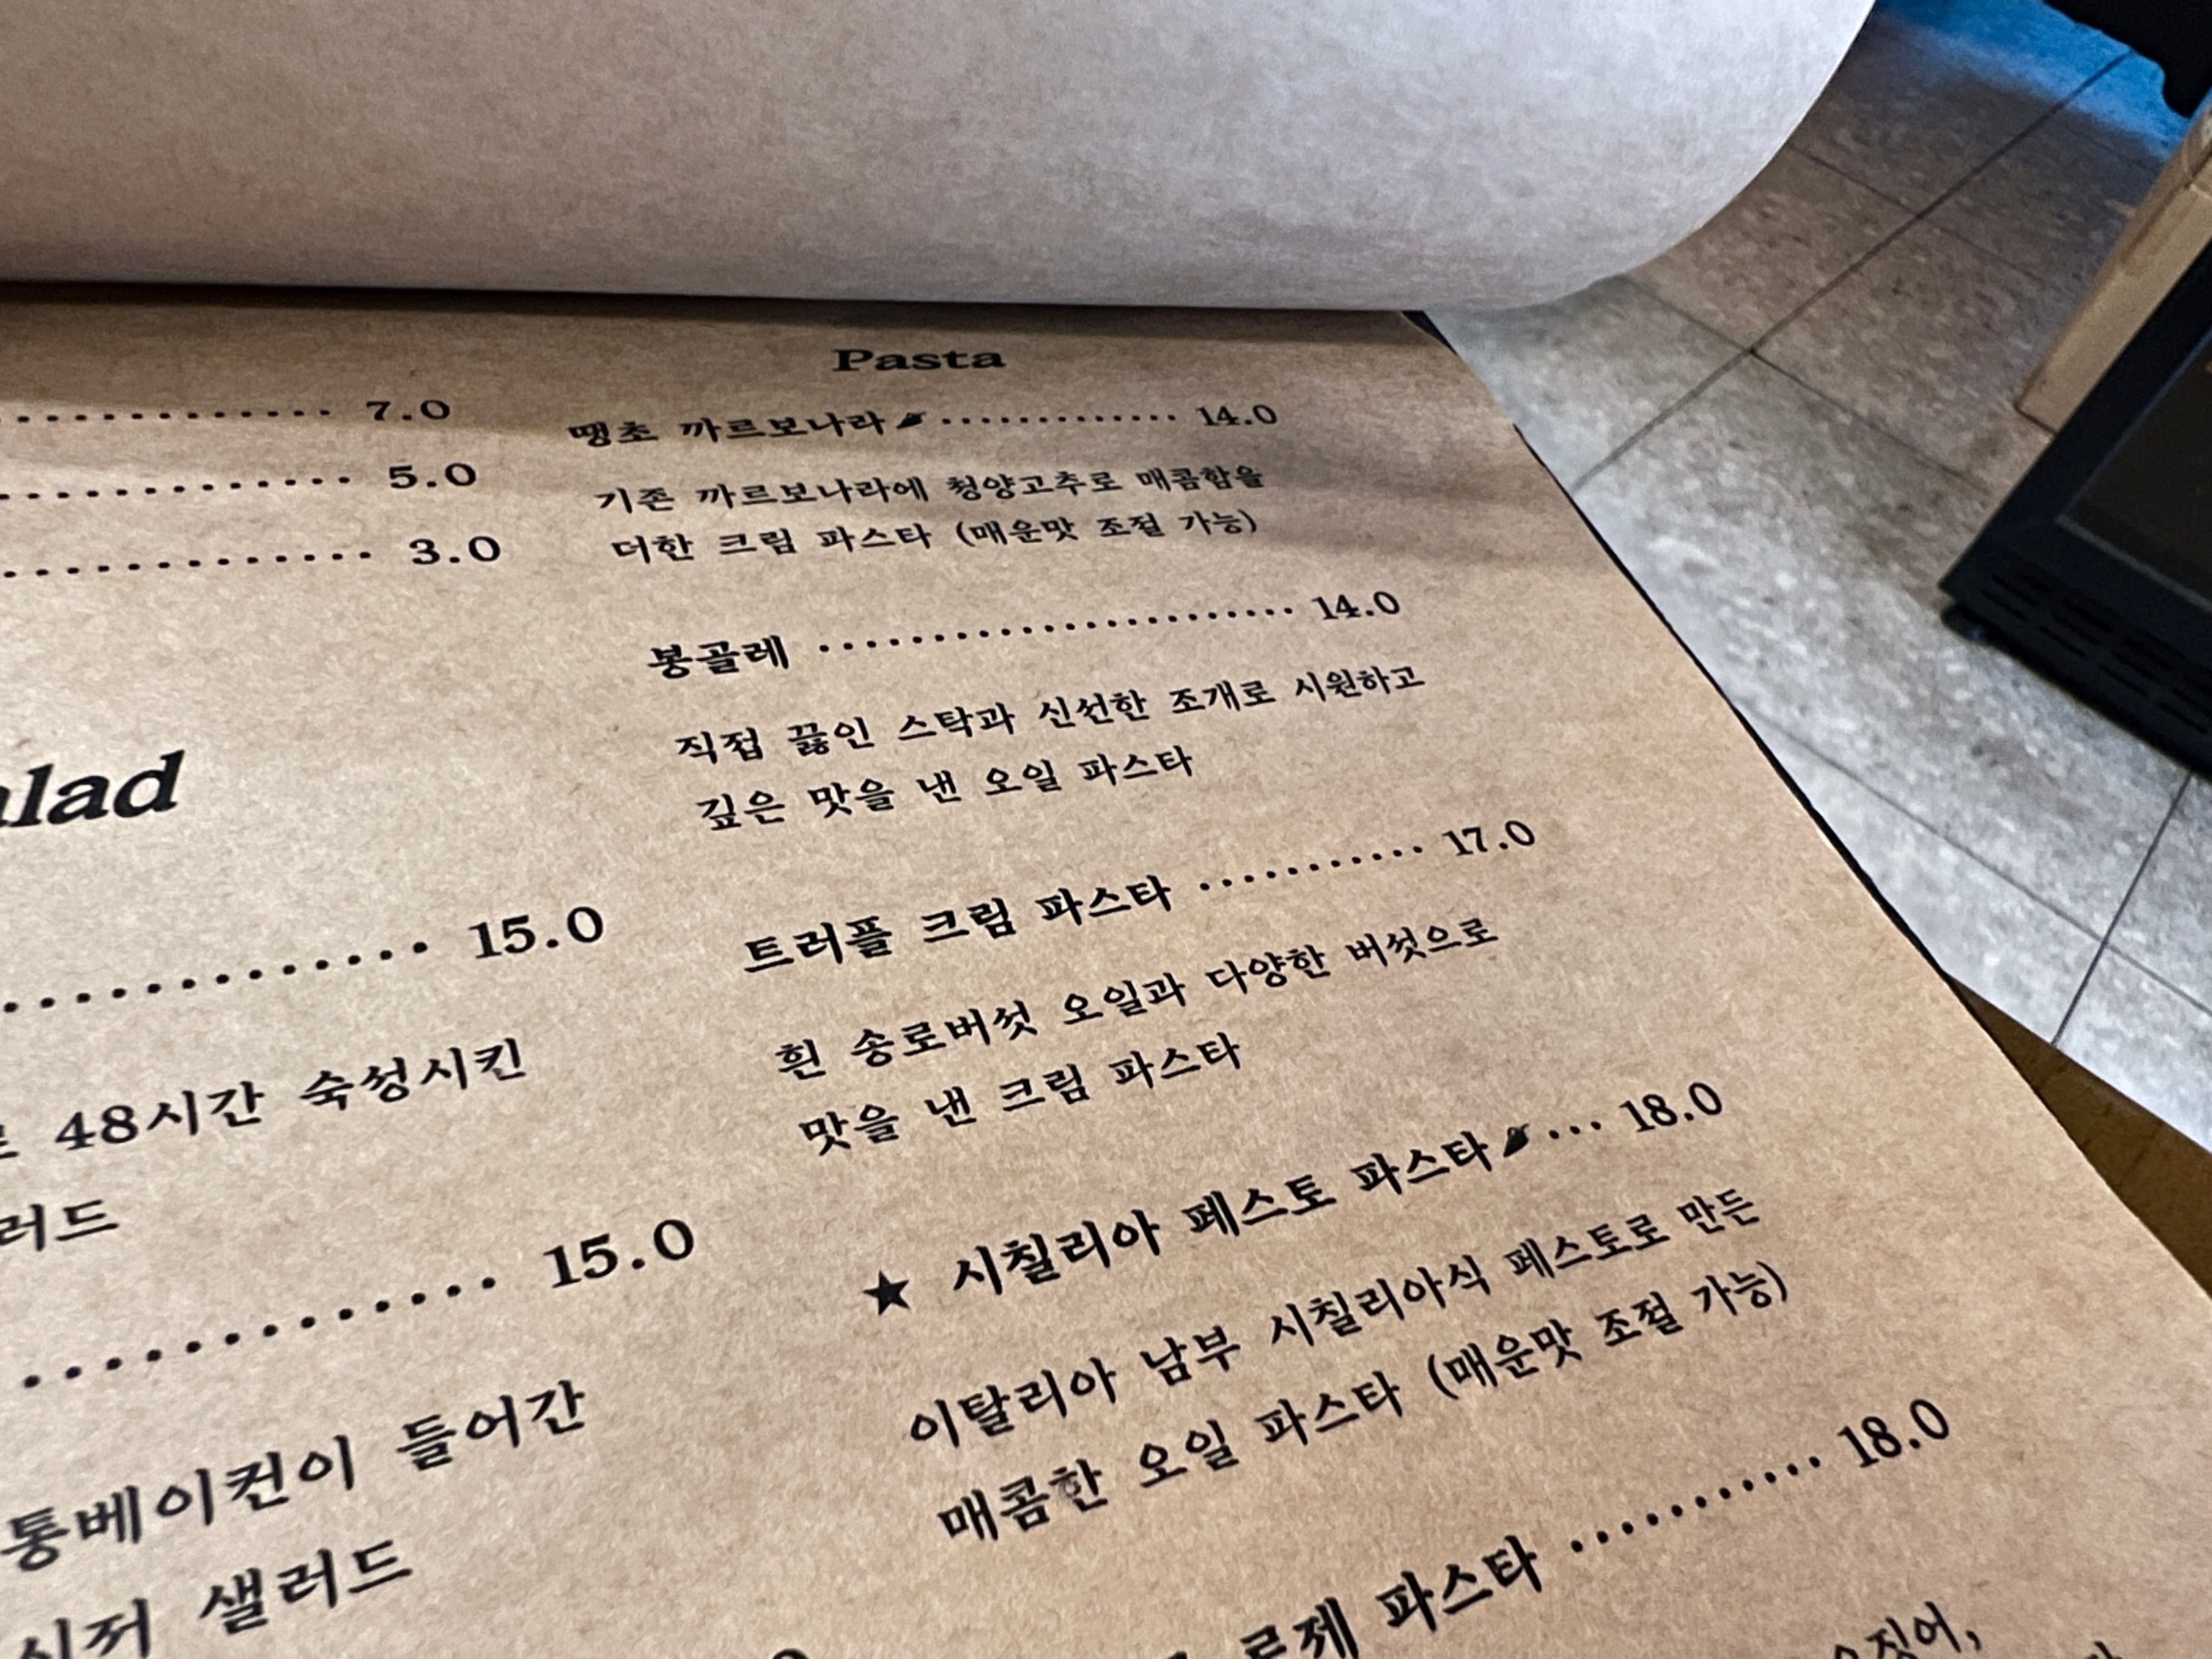 7.0
5.0
3.0
15.0
48시간 숙성시킨
15.0
통베이컨이 들어간
시저 샐러드
Pasta
땡초 까르보나라 ············· 14.0
기존 까르보나라에 청양고추로 매콤함을
더한 크림 파스타 (매운맛 조절 가능)
봉골레 ······················ 14.0
직접 끓인 스탁과 신선한 조개로 시원하고
깊은 맛을 낸 오일 파스타
트러플 크림 파스타 ··········· 17.0
흰 송로버섯 오일과 다양한 버섯으로
맛을 낸 크림 파스타
★ 시칠리아 페스토 파스타 ··· 18.0
이탈리아 남부 시칠리아식 페스토로 만든
매콤한 오일 파스타 (매운맛 조절 가능)
파스타 ··········· 18.0